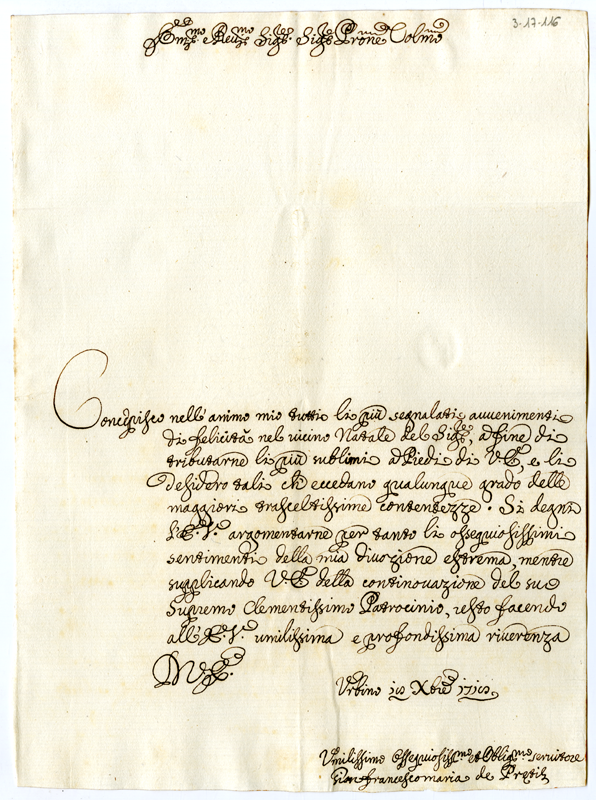 3-17-116
Em.mo e Rev.mo Sig.r Sig.r Prone Colmo
Concepisco nell'animo mio tutti li più segnalati avvenimenti
di felicità nel vicino Natale del Sig.re, a fine di
tributarne li più sublimi a Piedi di V.E, e li
desidero tali ch eccedano qualunque grado delle
maggiori trasceltissime contentezze. Si degni
l'E.V. argomentarne per tanto li ossequiosissimi
sentimenti della mia divozione estrema, mentre
supplicando V.E della continovazione del suo
Supremo Clementissimo Patrocinio, resto facendo
all'E.V. umilissima e profondissima riverenza
D V.E.
Urbino Xbre
Umilissimo Ossequiosiss.mo et Oblig.mo servitore
Gian francesco maria de